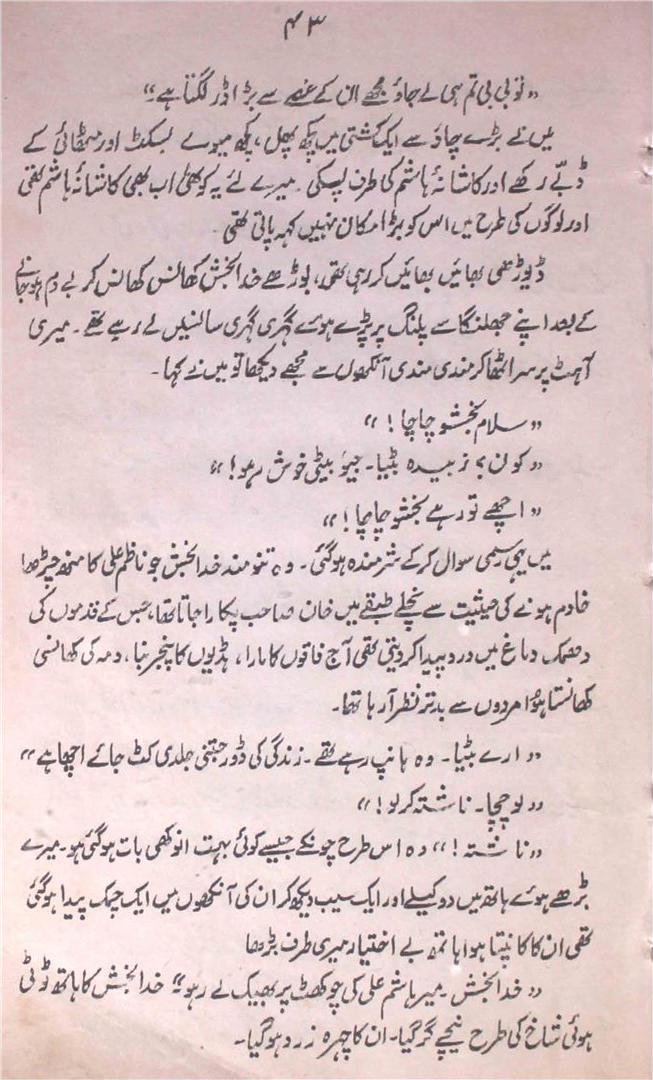 ۴۳
”تو بی بی تم ہی لے جاؤ مجھے ان کے غصے سے بڑا ڈر لگتا ہے۔“
میں نے بڑے چاؤ سے ایک کشتی میں کچھ پھل، کچھ میوے بسکٹ اور مٹھائی کے
ڈبّے رکھے اور کاشانۂ ہاشم کی طرف لپکی۔ میرے لئے یہ کوٹھی اب بھی کاشانۂ ہاشم تھی
اور لوگوں کی طرح میں اس کو بڑا مکان نہیں کہہ پاتی تھی۔
ڈیوڑھی بھائیں بھائیں کر رہی تھی، بوڑھے خدا بخش کھانس کھانس کر بے دم ہو جانے
کے بعد اپنے جھلنگا سے پلنگ پر پڑے ہوئے گہری گہری سانسیں لے رہے تھے۔ میری
آہٹ پر سر اٹھا کر مندی مندی آنکھوں سے مجھے دیکھا تو میں نے کہا۔
”سلام بخشو چاچا!“
”کون؟ زبیدہ بٹیا۔ جیو بیٹی خوش رہو!“
”اچھے تو رہے بخشو چاچا!“
میں یہی رسمی سوال کرکے شرمندہ ہوگئی۔ وہ تنومند خدا بخش جو ناظم علی کا منھ چڑھا
خادم ہونے کی حیثیت سے نچلے طبقے میں خان صاحب پکارا جاتا تھا، جس کے قدموں کی
دھمک دماغ میں درد پیدا کر دیتی تھی آج فاقوں کا مارا، ہڈیوں کا پنجر بنا، دمہ کی کھانسی
کھانستا ہؤا مردوں سے بدتر نظر آرہا تھا۔
”ارے بٹیا۔ وہ ہانپ رہے تھے۔ زندگی کی ڈور جتنی جلدی کٹ جائے اچھا ہے“
”لو چچا۔ ناشتہ کرلو!“
”ناشتہ!“ وہ اس طرح چونکے جیسے کوئی بہت انوکھی بات ہوگئی ہو۔ میرے
بڑھے ہوئے ہاتھ میں دو کیلے اور ایک سیب دیکھ کر ان کی آنکھوں میں ایک چمک پیدا ہوگئی
تھی ان کا کانپتا ہوا ہاتھ بے اختیار میری طرف بڑھا
”خدا بخش۔ میر ہاشم علی کی چوکھٹ پر بھیک لے رہو“ خدا بخش کا ہاتھ ٹوٹی
ہوئی شاخ کی طرح نیچے گر گیا۔ ان کا چہرہ زرد ہوگیا۔